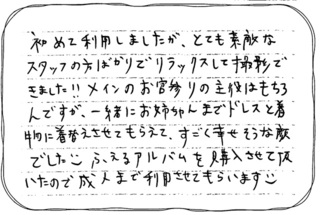 初めて利用しましたが、とても素敵な
スタッフの方ばかりでリラックスして撮影で
きました!! メインのお宮参りの主役はもちろ
んですが、一緒にお姉ちゃんまでドレスと着
物に着替えさせてもらえて、すごく幸せそうな顔
でした ふえるアルバムを購入させて頂
いたので成人まで利用させてもらいます